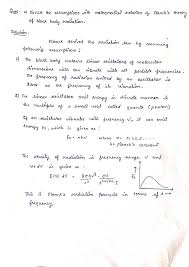 Ques: Discuss the assumptions with mathematical of Planck's theory
of black body radiation.
Solution:
Planck derived the radiation law by assuming
following assumptions:
1) The black body contains linear oscillators of molecular
dimensions and can vibrate with all possible frequencies.
The frequency of radiation emitted by an oscillator is
same as the frequency of its vibration.
2) The linear oscillator emit energy in discrete manner ie
the multiple of a small unit called quanta (photon)
If the frequency of vibration is ν, it can emit
energy En which is given as:
En = nhν where n = 0, 1, 2, ...
h = planck's constant
The density of radiation in frequency range ν and
ν+dν is given as:
E(ν) dν =
This is Planck's radiation formula in terms of
frequency.